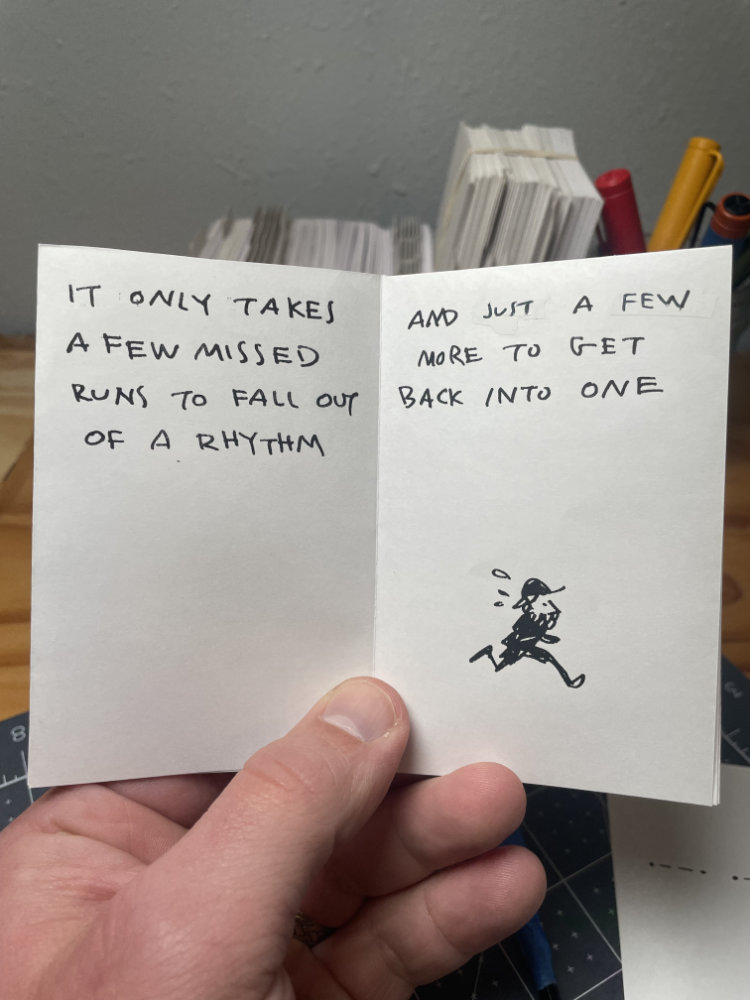 IT ONLY TAKES
A FEW MISSED
RUNS TO FALL OUT
OF A RHYTHM
AND JUST A FEW
MORE TO GET
BACK INTO ONE
8
3